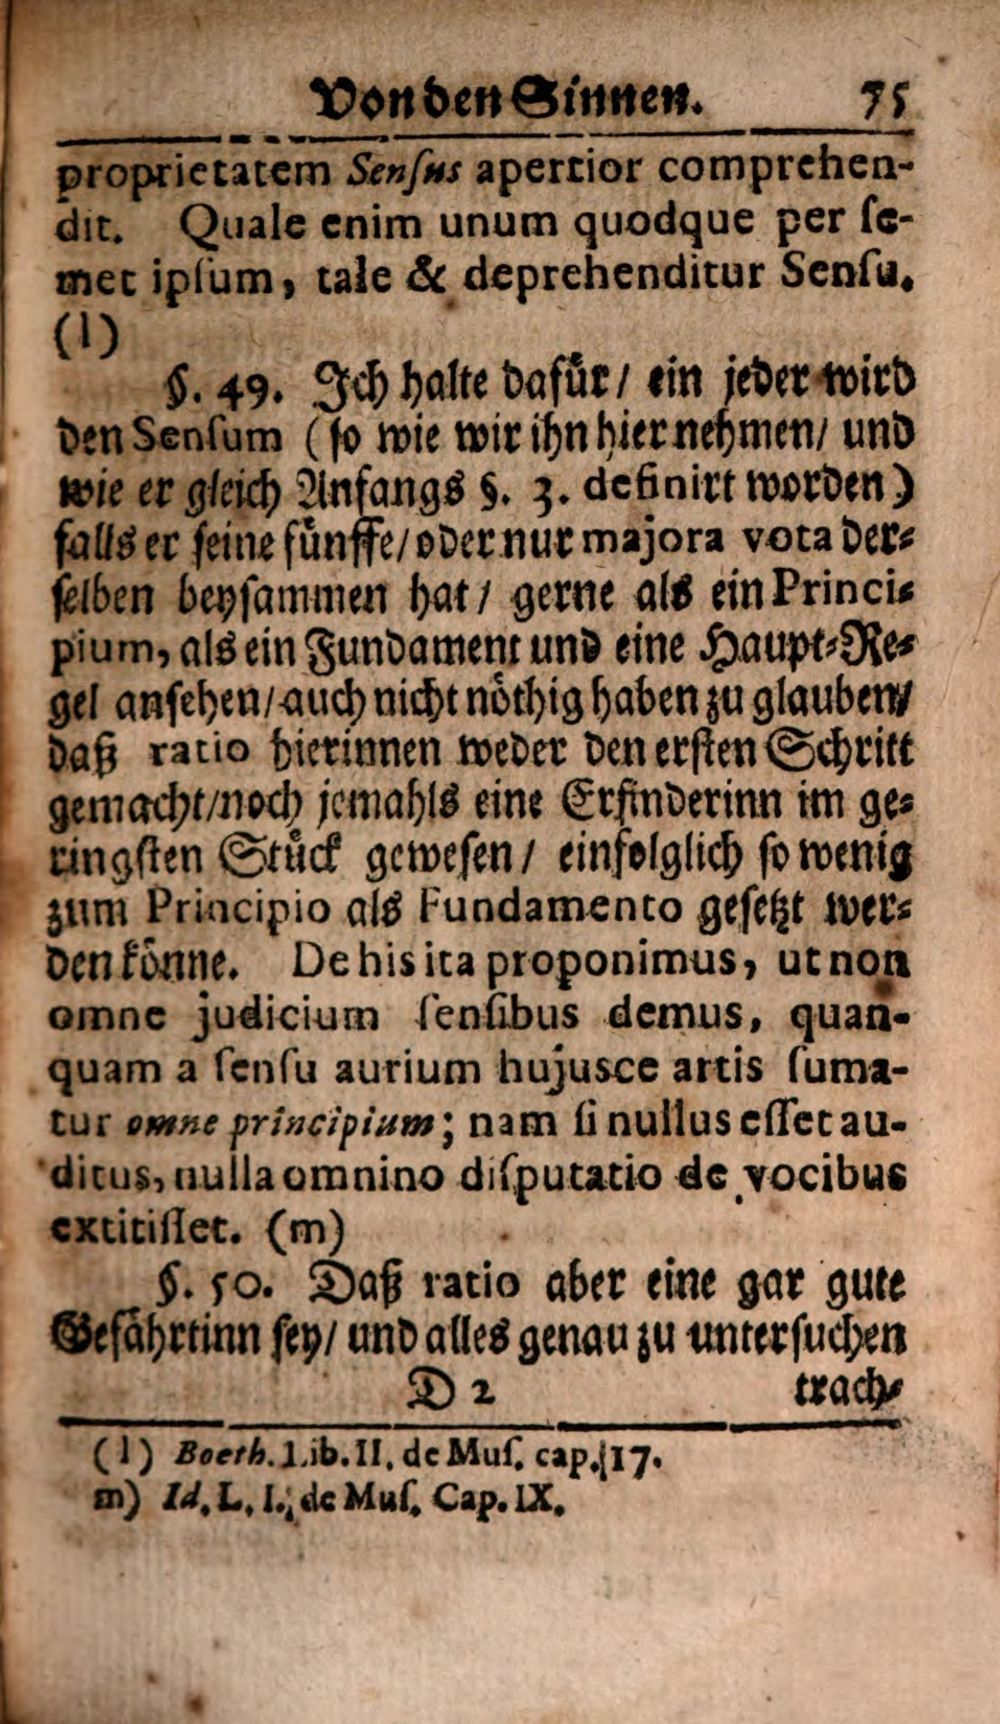 Von den Sinnen. 75
proprietatem Senſus apertior comprehen-
dit. Quale enim unum quodque per ſe-
met ipſum, tale & deprehenditur Senſu.
(l)
§. 49. Ich halte dafuͤr/ ein jeder wird
den Senſum (ſo wie wir ihn hier nehmen/ und
wie er gleich Anfangs §. 3. definirt worden)
falls er ſeine fuͤnffe/ oder nur majora vota der⸗
ſelben beyſammen hat/ gerne als ein Princi⸗
pium, als ein Fundament und eine Haupt⸗Re⸗
gel anſehen/ auch nicht noͤthig haben zu glauben/
daß ratio hierinnen weder den erſten Schritt
gemacht/ noch jemahls eine Erfinderinn im ge⸗
ringſten Stuͤck geweſen/ einfolglich ſo wenig
zum Principio als Fundamento geſetzt wer⸗
den koͤnne. De his ita proponimus, ut non
omne judicium ſenſibus demus, quan-
quam a ſenſu aurium hujusce artis ſuma-
tur omne principium; nam ſi nullus eſſet au-
ditus, nulla omnino diſputatio de vocibus
extitiſſet. (m)
§. 50. Daß ratio aber eine gar gute
Gefaͤhrtinn ſey/ und alles genau zu unterſuchen
D 2 trach⸗
(l) Boeth. Lib. II. de Muſ. cap. 17.
m) Id. L. I. de Muſ. Cap. IX.